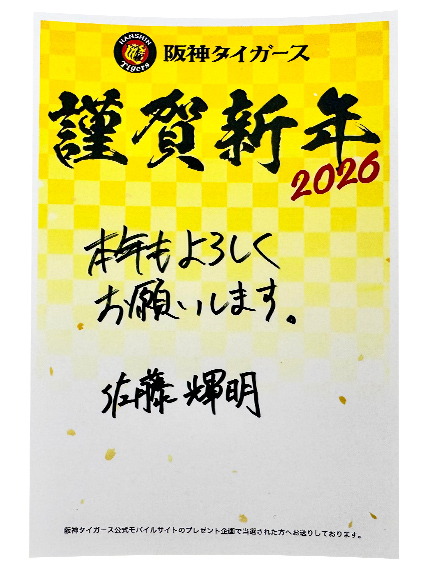 HANSHIN
Tigers
阪神タイガース
謹賀新年
2026
本年もよろしく
お願いします。
佐藤輝明
阪神タイガース公式モバイルサイトのプレゼント企画で当選された方へお送りしております。